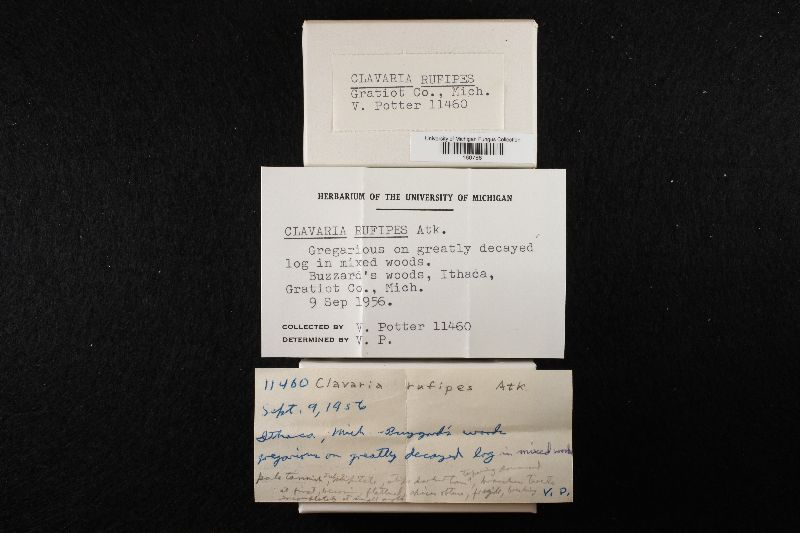 CLAVARIA RUFIPES
Gratiot Co., Mich.
V. Potter 11460
University of Michigan Fungus Collection
HERBARIUM OF THE UNIVERSITY OF MICHIGAN
CLAVARIA RUFIPES Atk.
Gregarious on greatly decayed
log in mixed woods.
Buzzard's woods, Ithaca,
Gratiot Co., Mich.
9 Sep 1956.
COLLECTED BY V. Potter 11460
DETERMINED BY V. P.
11460 Clavaria rufipes Atk
Sept. 9, 1956
Ithaca, Mich - Buzzard's woods
gregarious on greatly decayed log in mixed woods
pale
at first,
V. P.